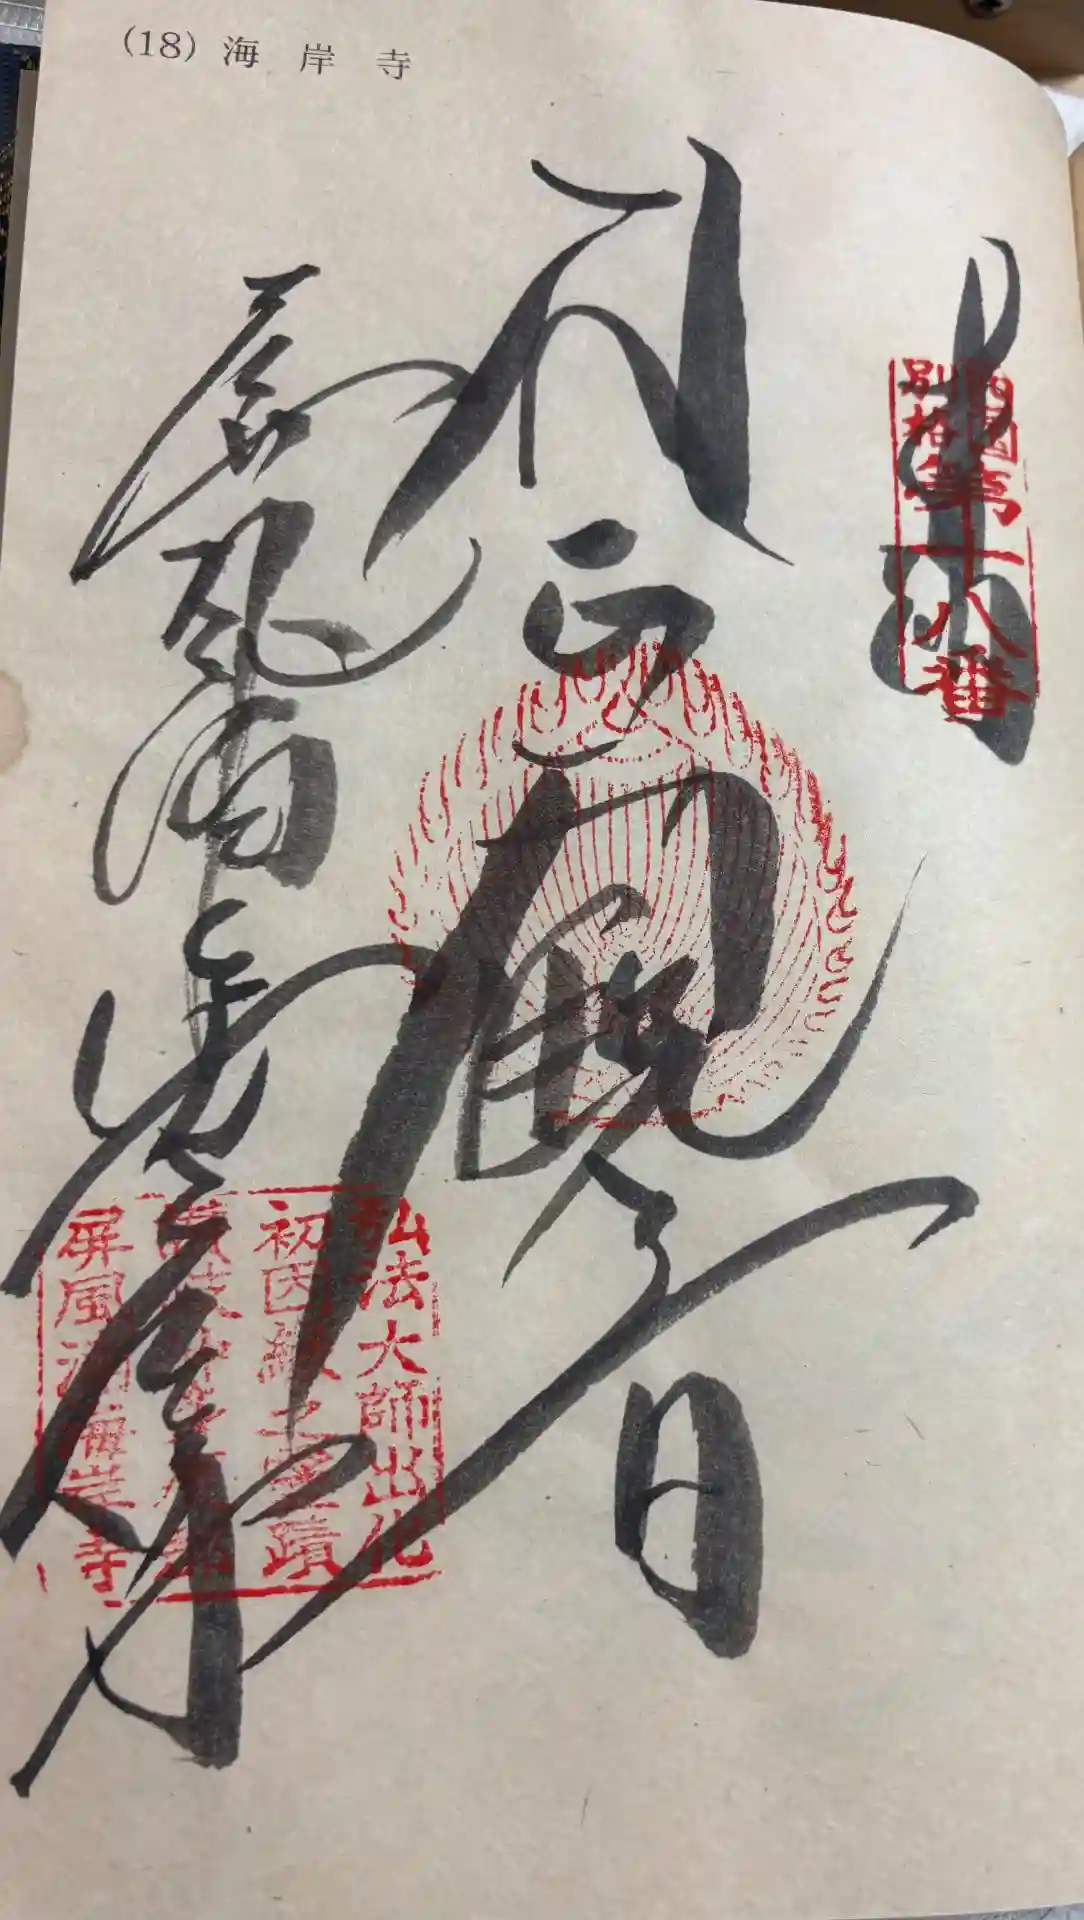 (18) 海岸寺
奉納
四國
別格
第十八番
聖観音
屏風浦
海岸寺
弘法大師出化
初因縁之霊蹟
屏風浦海岸寺